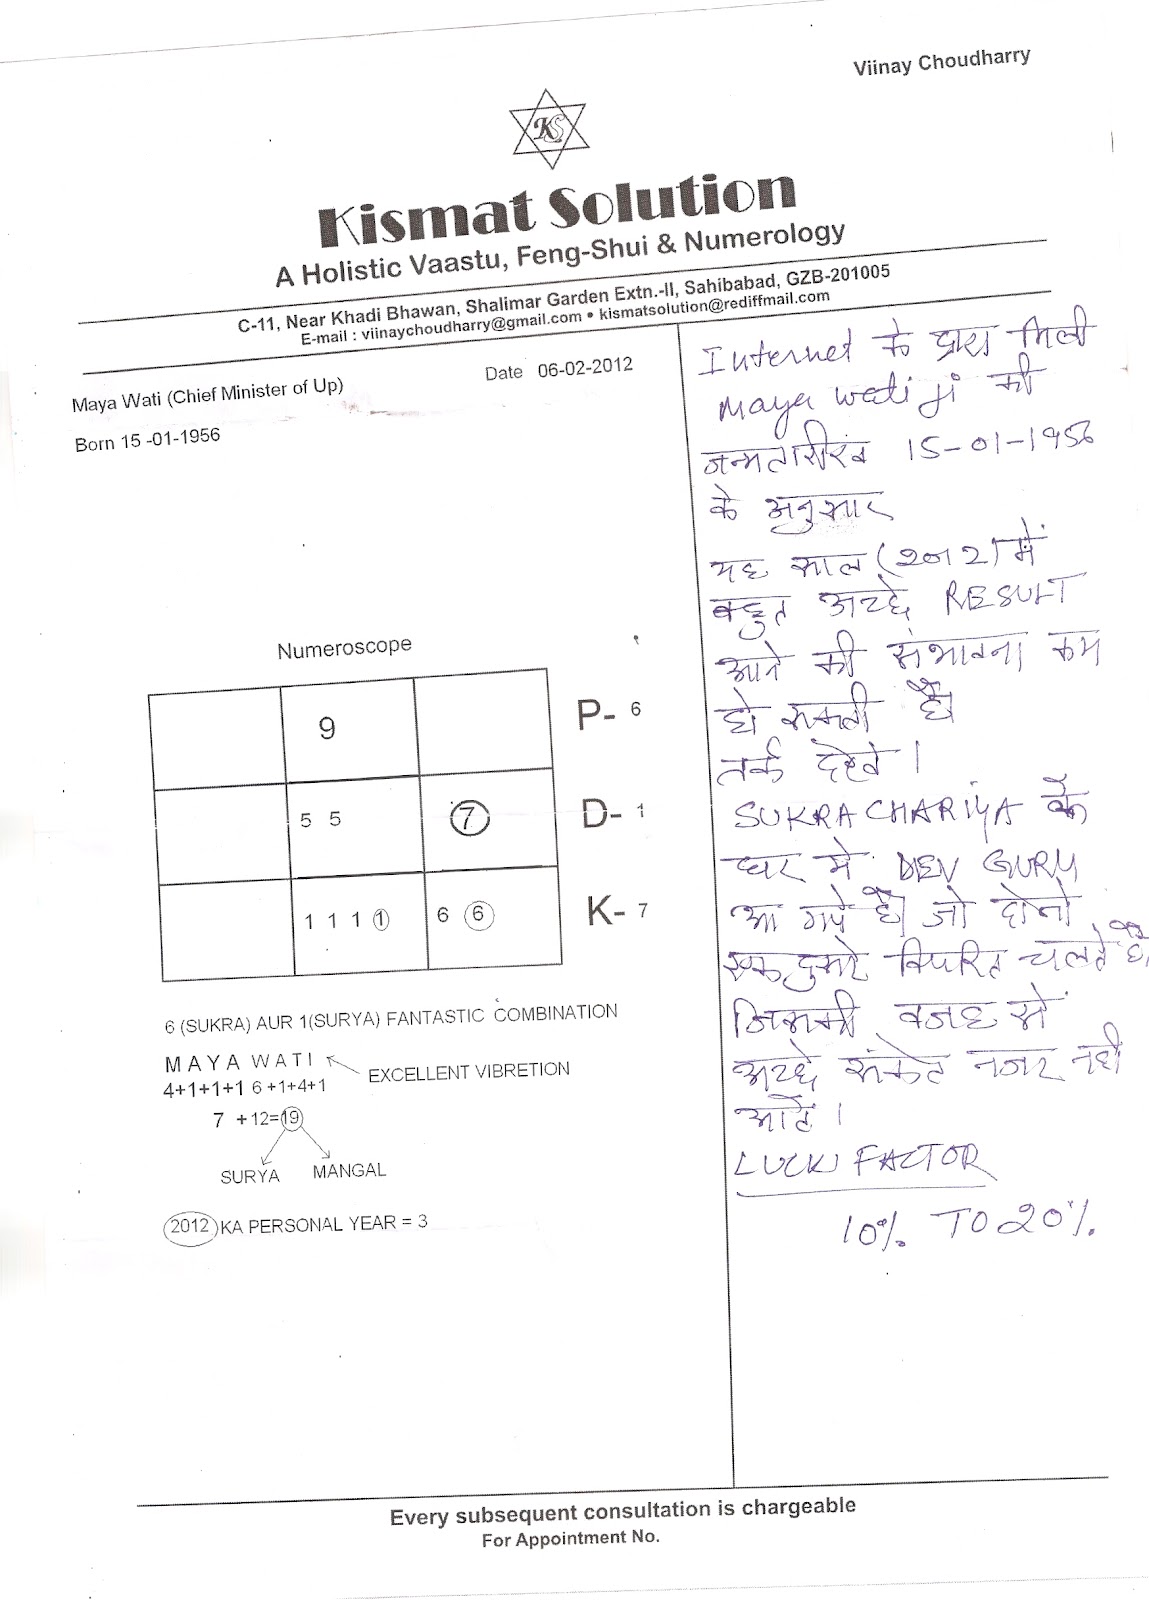 Viinay Choudharry
KS
Kismat Solution
A Holistic Vaastu, Feng-Shui & Numerology
C-11, Near Khadi Bhawan, Shalimar Garden Extn.-II, Sahibabad, GZB-201005
E-mail : viinaychoudharry@gmail.com • kismatsolution@rediffmail.com
Maya Wati (Chief Minister of Up)
Date 06-02-2012
Born 15 -01-1956
Numeroscope
9
P- 6
5 5
7
D- 1
1 1 1 1
6 6
K- 7
6 (SUKRA) AUR 1(SURYA) FANTASTIC COMBINATION
M A Y A W A T I
EXCELLENT VIBRETION
4+1+1+1 6 +1+4+1
7 +12=19
SURYA MANGAL
2012 KA PERSONAL YEAR = 3
Internet के द्वारा मिली
Maya Wati ji की
जन्मतारीख 15-01-1956
के अनुसार
यह साल (2012) में
बहुत अच्छे RESULT
आने की संभावना कम
हो सकती है
तर्क देते ।
SUKRACHARIYA के
घर मे DEV GURU
आ गये है। जो दोनो
एक दुसरे विपरित चलते है,
जिसकी वजह से
अच्छे संकेत नजर नही
आते ।
LUCKI FACTOR
10% TO 20%
Every subsequent consultation is chargeable
For Appointment No.